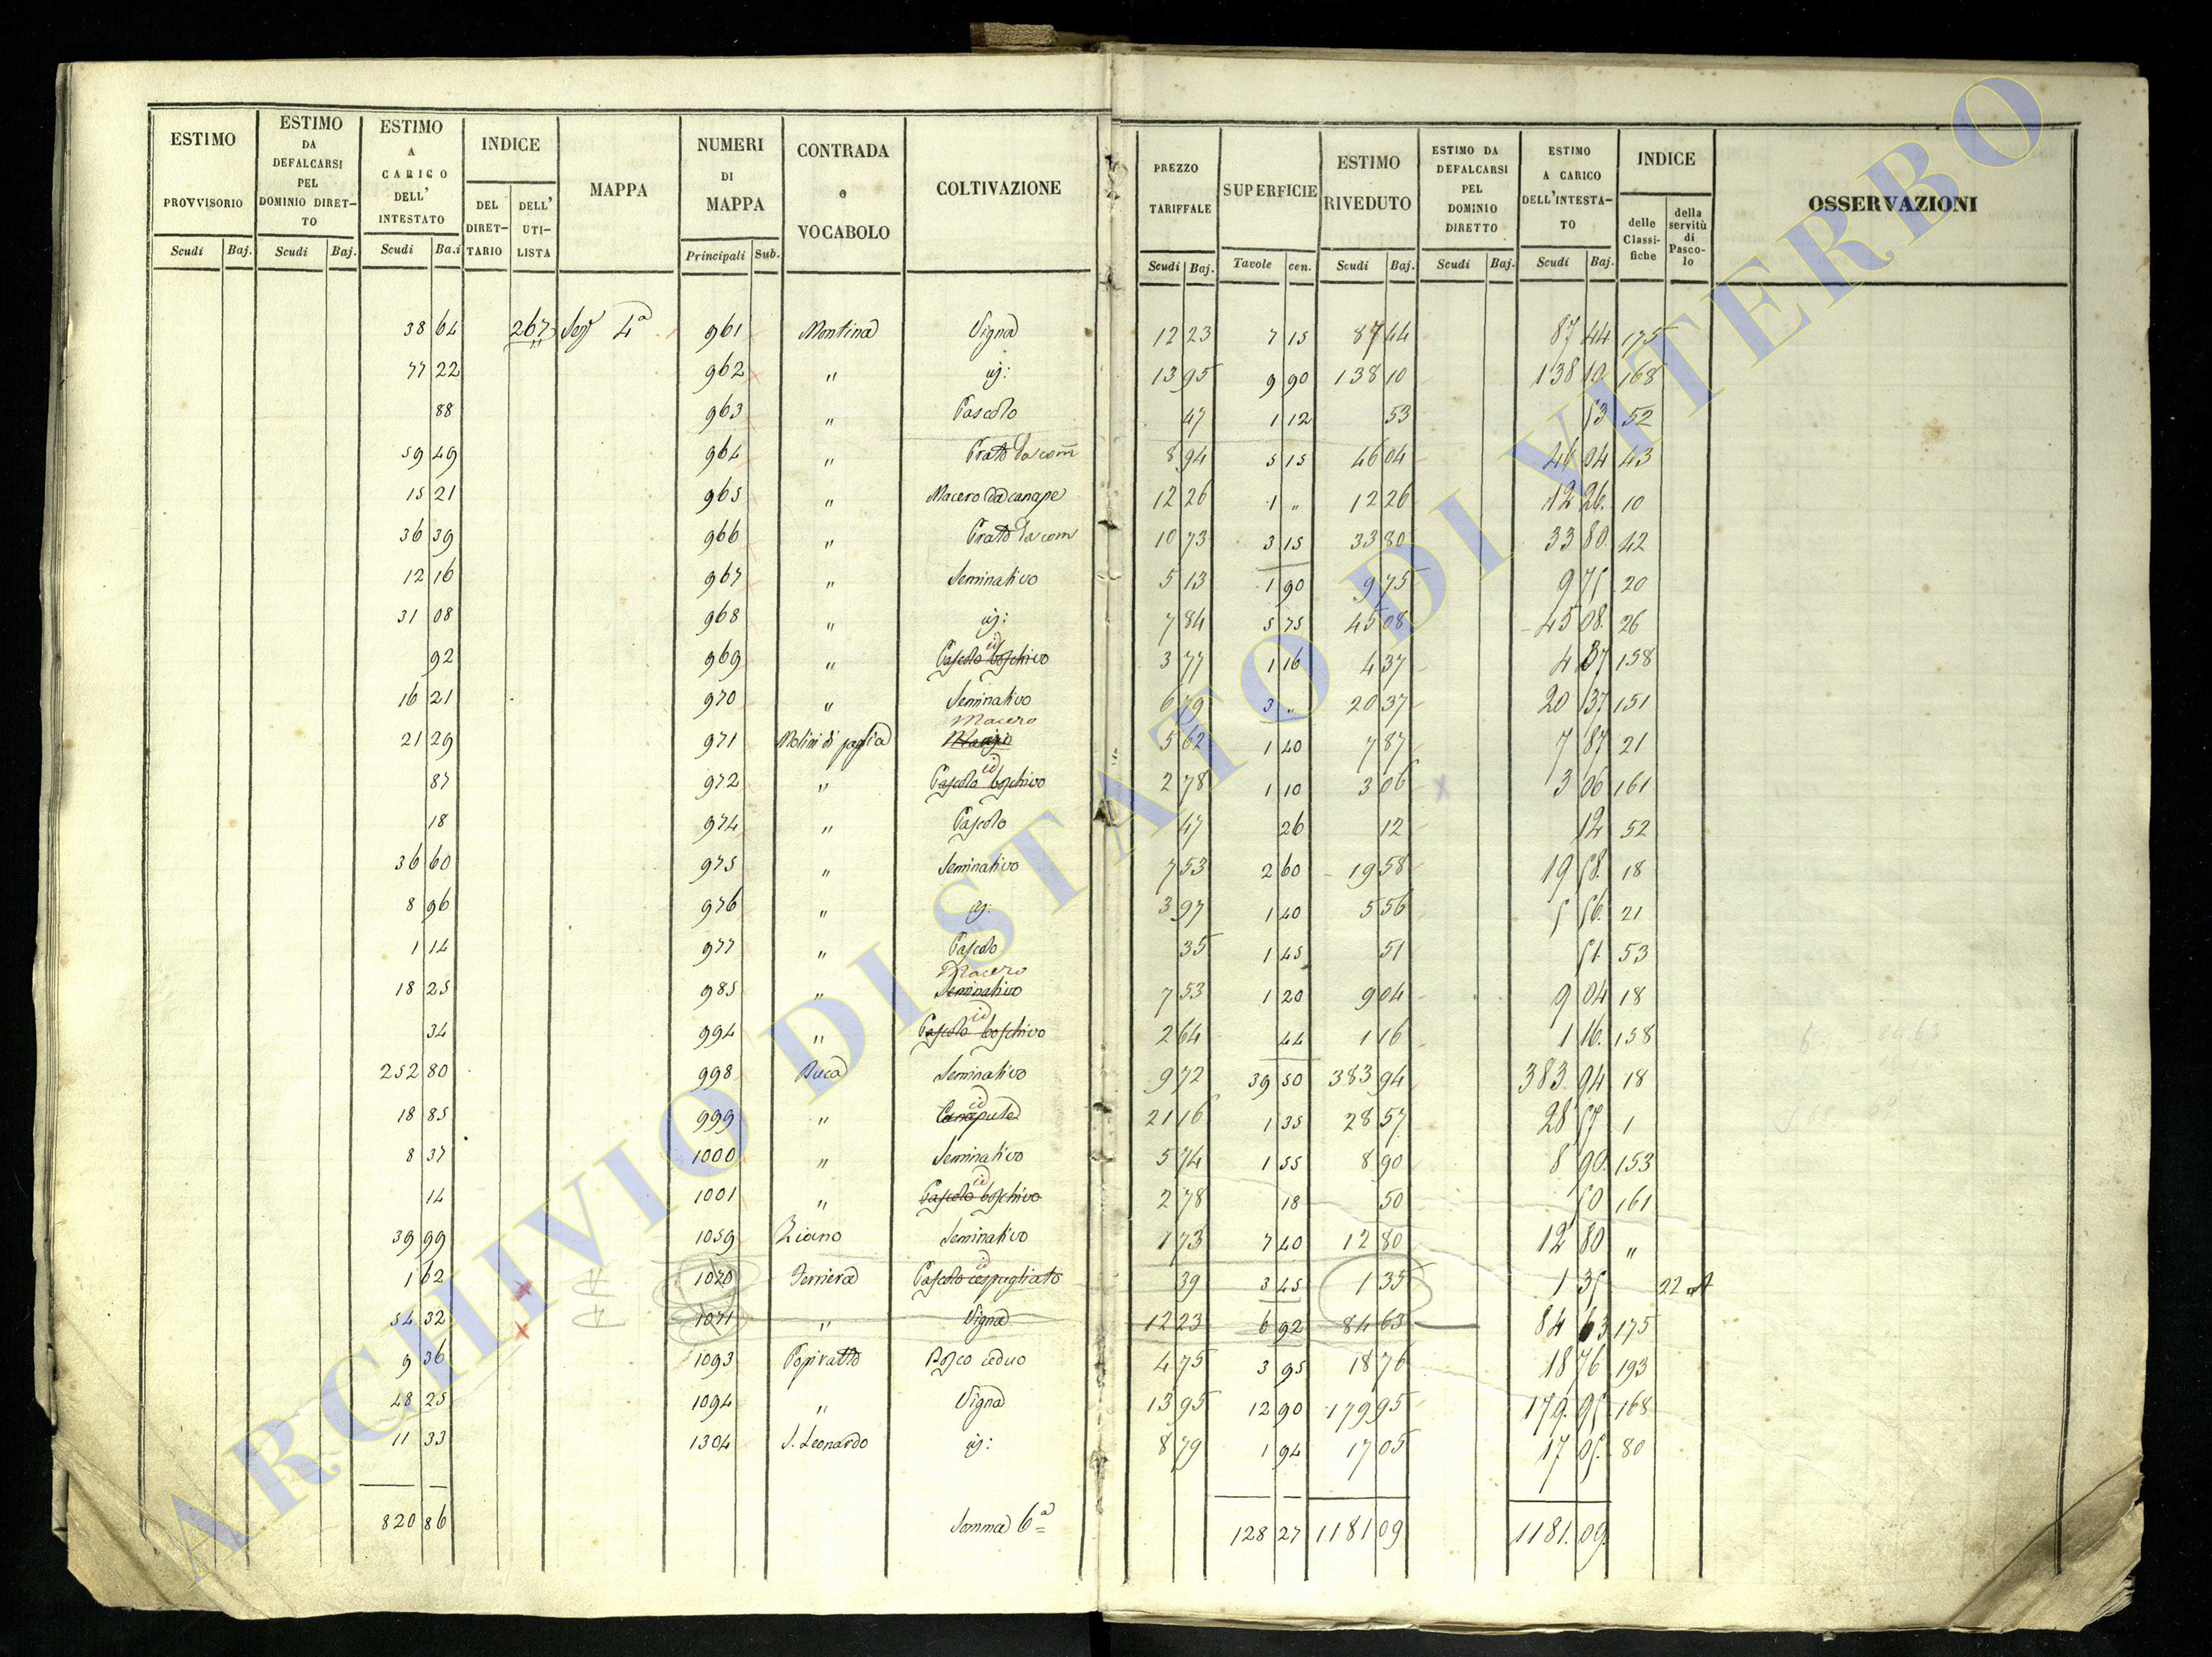 ESTIMO PROVVISORIO Scudi Baj.
ESTIMO DA DEFALCARSI PEL DOMINIO DIRET-TO Scudi Baj.
ESTIMO A CARICO DELL' INTESTATO Scudi Ba.i
INDICE DEL DIRET-TARIO DELL' UTI-LISTA
MAPPA
NUMERI DI MAPPA Principali Sub.
CONTRADA e VOCABOLO
COLTIVAZIONE
PREZZO TARIFFALE Scudi Baj.
SUPERFICIE Tavole cen.
ESTIMO RIVEDUTO Scudi Baj.
ESTIMO DA DEFALCARSI PEL DOMINIO DIRETTO Scudi Baj.
ESTIMO A CARICO DELL'INTESTA-TO Scudi Baj.
INDICE delle Classi-fiche della servitù di Pasco-lo
OSSERVAZIONI
38 64 267 4a 961 Montina Vigna 12 23 7 15 87 44 87 44 175
77 22 962 " id: 13 95 9 90 138 10 138 10 168
88 963 " Pascolo 47 1 12 53 53 52
59 49 964 " Prato 8 94 5 15 46 04 46 04 43
15 21 965 " Macero da canape 12 26 1 " 12 26 12 26. 10
36 39 966 " Prato 10 73 3 15 33 80 33 80. 42
12 16 967 " Seminativo 5 13 1 90 9 75 9 75 20
31 08 968 " id: 7 84 5 75 45 08 45 08. 26
92 969 " Pascolo boschivo id 3 77 1 16 4 37 4 37 158
16 21 970 " Seminativo 6 79 3 " 20 37 20 37 151
21 29 971 Molini di paglia Macero 5 62 1 40 7 87 7 87 21
87 972 " Pascolo boschivo id 2 78 1 10 3 06 3 06 161
18 974 " Pascolo 47 26 12 12 52
36 60 975 " Seminativo 7 53 2 60 19 58 19 58. 18
8 96 976 " id: 3 97 1 40 5 56 5 56. 21
1 14 977 " Pascolo 35 1 45 51 51. 53
18 25 985 " Macero Seminativo 7 53 1 20 9 04 9 04 18
34 994 " Pascolo boschivo id 2 64 44 1 16 1 16. 158
252 80 998 Buca Seminativo 9 72 39 50 383 94 383 94 18
18 85 999 " id 21 16 1 35 28 57 28 57 1
8 37 1000 " Seminativo 5 74 1 55 8 90 8 90. 153
14 1001 " Pascolo boschivo id 2 78 18 50 50 161
39 99 1059 Riano Seminativo 1 73 7 40 12 80 12 80 "
1 62 1070 Ferriera Pascolo cespugliato id 39 3 45 1 35 1 35 22
54 32 1071 " Vigna 12 23 6 92 84 63 84 63 175
9 36 1093 Bosco ceduo 4 75 3 95 18 76 18 76 193
48 25 1094 " Vigna 13 95 12 90 179 95 179. 95 168
11 33 1304 S. Leonardo id: 8 79 1 94 17 05 17. 05. 80
820 86 Somma 6a 128 27 1181 09 1181. 09.
ARCHIVIO DI STATO DI VITERBO